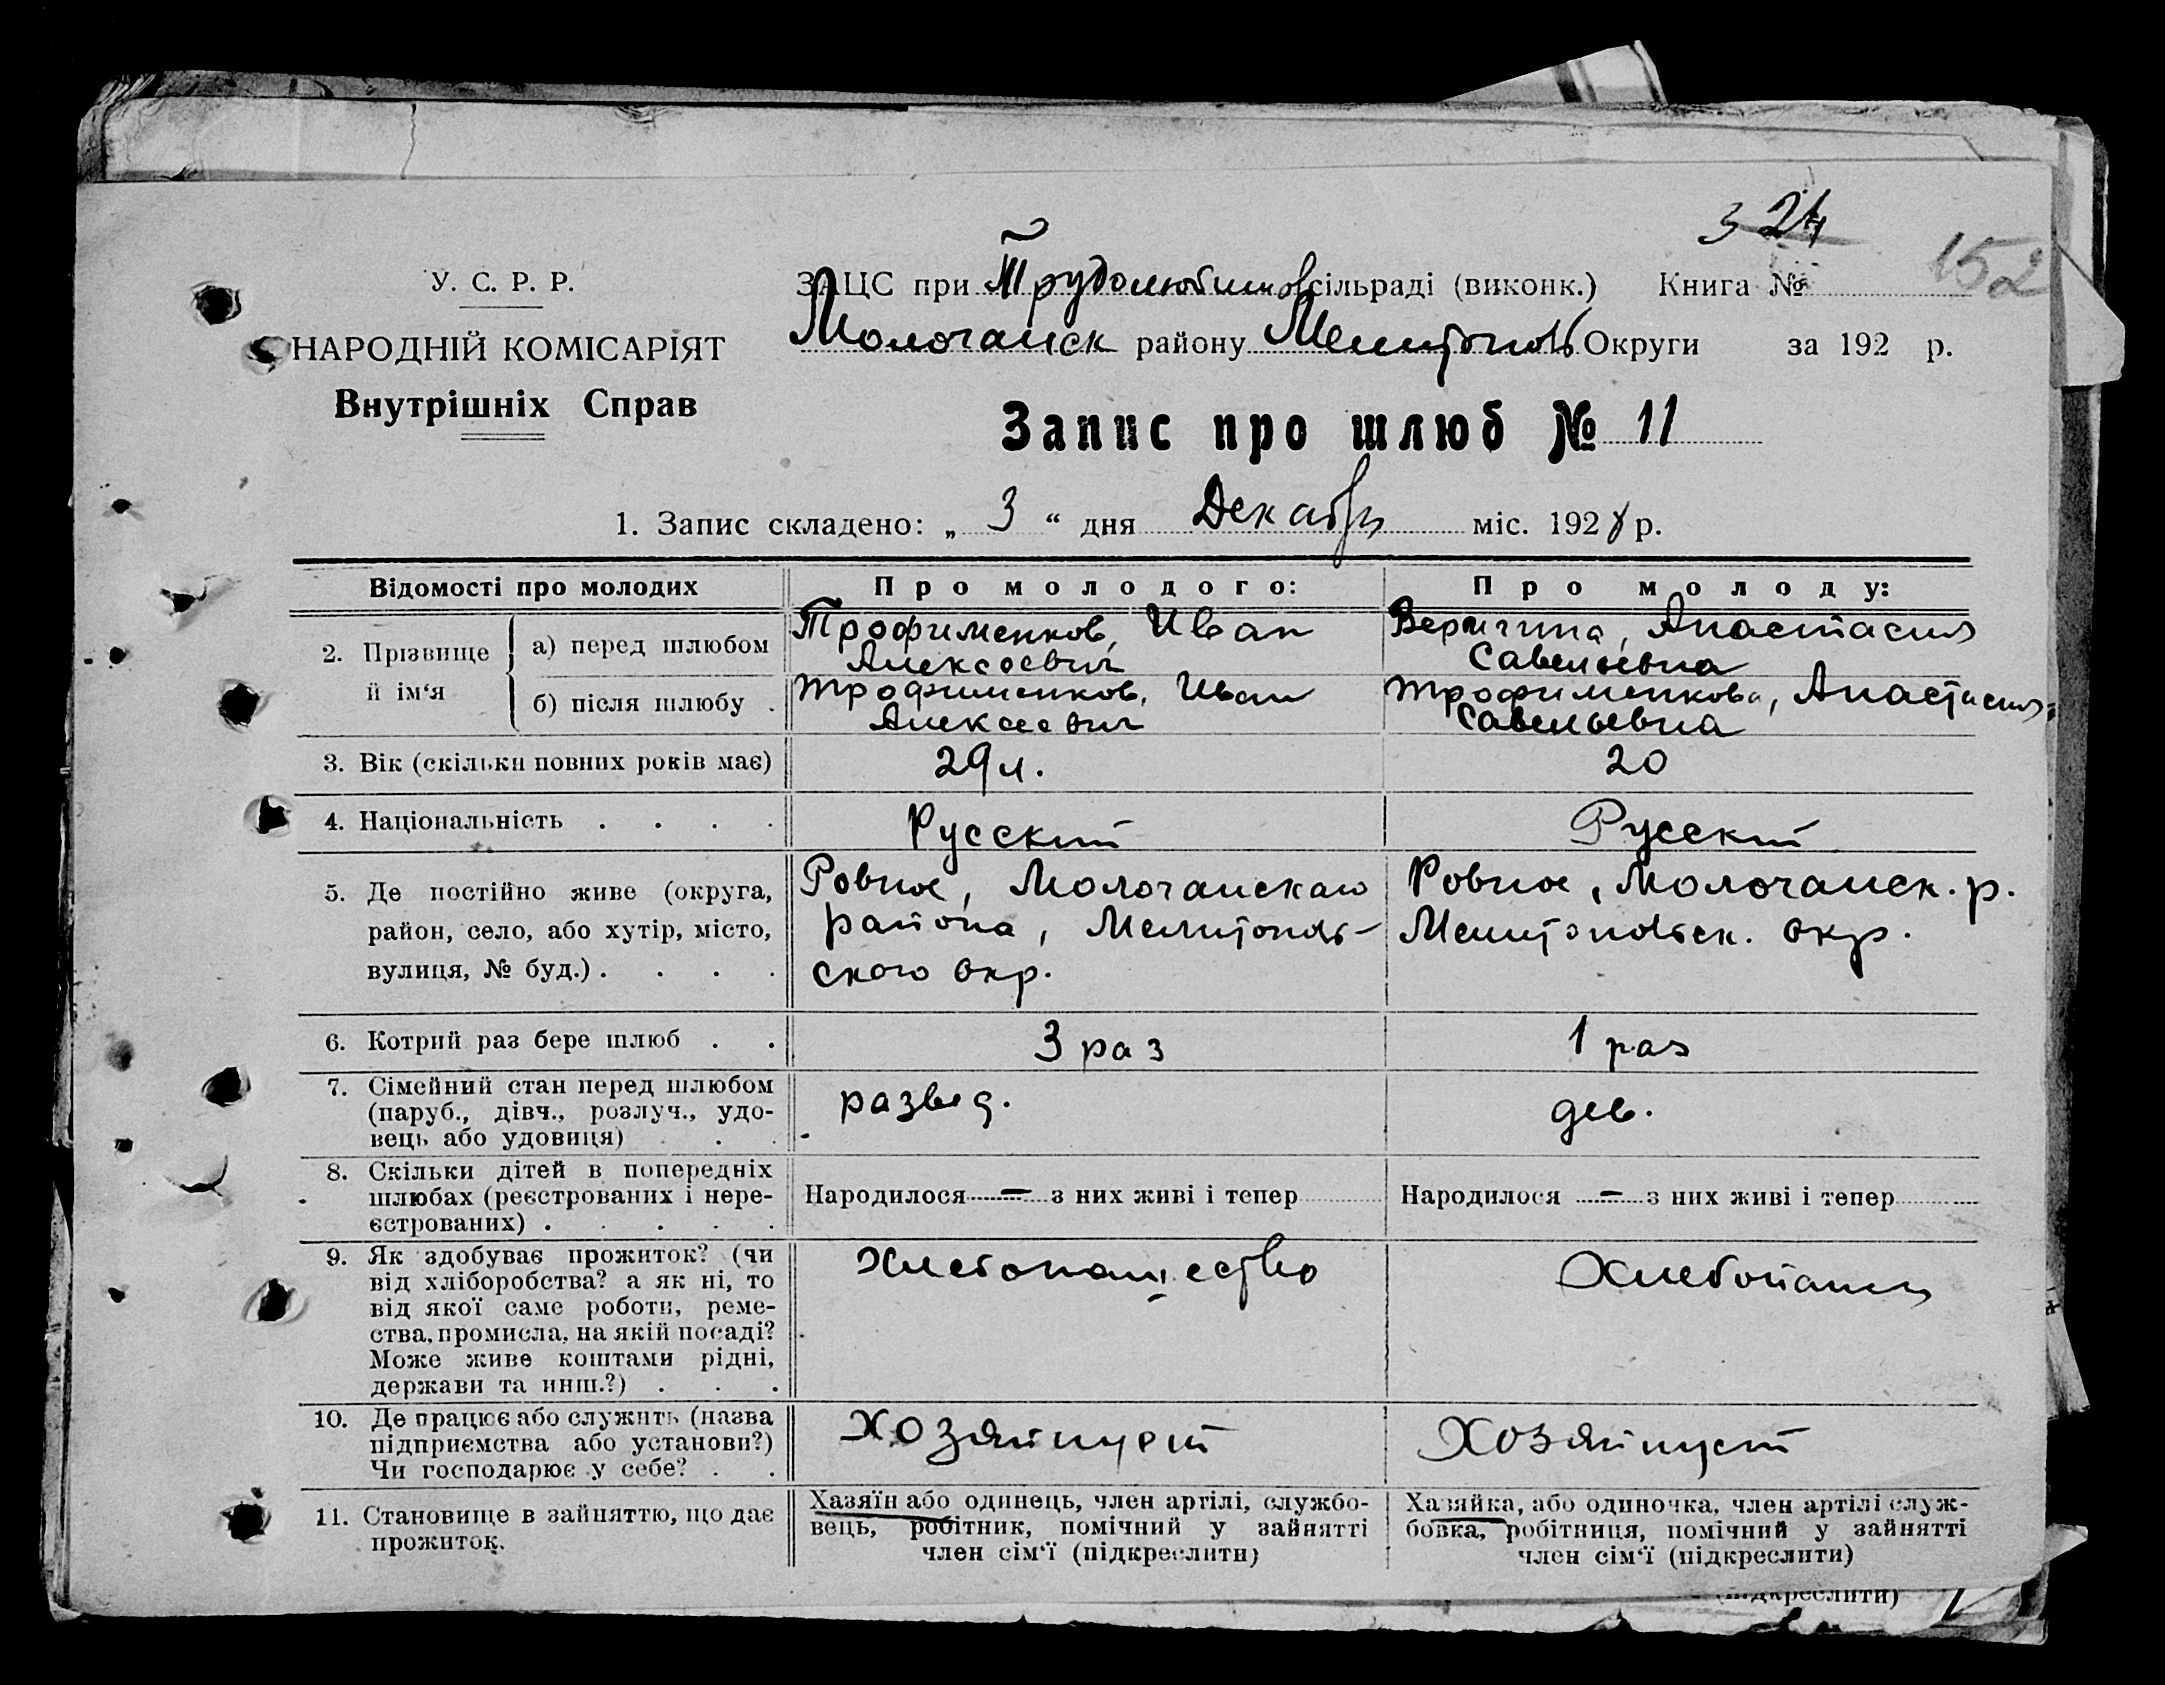 3 24
152
У. С. Р. Р.
НАРОДНІЙ КОМІСАРІЯТ
Внутрішніх Справ
ЗАЦС при Трудолюбимов сільраді (виконк.) Книга №
Молочанск району Мелитополь Округи за 192 р.
Запис про шлюб № 11
1. Запис складено: „ 3 “ дня Декабря міс. 1928 р.
Відомості про молодих
Про молодого:
Про молоду:
2. Прізвище й ім‘я
а) перед шлюбом
Трофименков, Иван
Алексеевич
Веригина, Анастасия
Савельевна
б) після шлюбу .
Трофименков, Иван
Алексеевич
Трофименкова, Анастасия
Савельевна
3. Вік (скільки повних років має)
29 л.
20
4. Національність . . . .
Русский
Русский
5. Де постійно живе (округа,
район, село, або хутір, місто,
вулиця, № буд.) . . . .
Ровное, Молочанскаго
района, Мелитополь-
ского окр.
Ровное, Молочанск. р.
Мелитопольск. окр.
6. Котрий раз бере шлюб . .
3 раз
1 раз
7. Сімейний стан перед шлюбом
(паруб., дівч., розлуч., удо-
вець або удовиця) . .
развед.
дев.
8. Скільки дітей в попередніх
шлюбах (реєстрованих і нере-
єстрованих) . . . . .
Народилося — з них живі і тепер
Народилося — з них живі і тепер
9. Як здобуває прожиток? (чи
від хліборобства? а як ні, то
від якої саме роботи, реме-
ства, промисла, на якій посаді?
Може живе коштами рідні,
держави та инш.?) . . .
Хлебопашество
Хлебопаш
10. Де працює або служить (назва
підприємства або установи?)
Чи господарює у себе? . .
Хозяйнует
Хозяйнует
11. Становище в зайняттю, що дає
прожиток.
Хазяїн або одинець, член артілі, службо-
вець, робітник, помічний у зайнятті
член сім‘ї (підкреслити)
Хазяйка, або одиночка, член артілі служ-
бовка, робітниця, помічний у зайнятті
член сім‘ї (підкреслити)
(підкреслити)